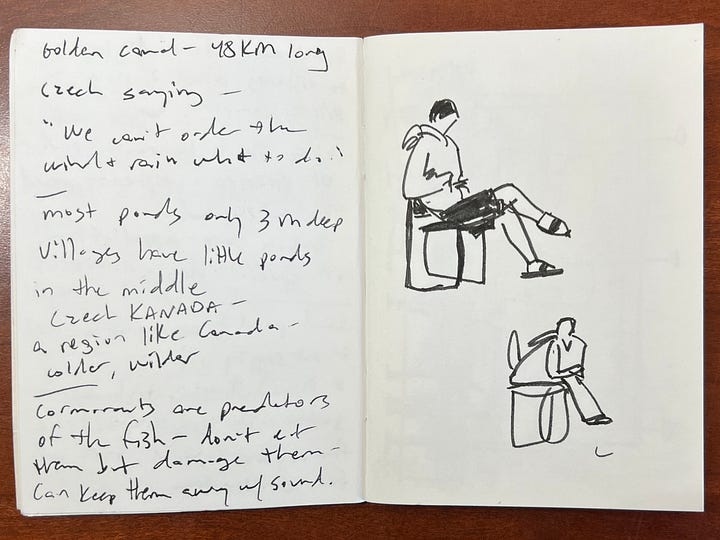 Golden canal - 48KM long
Czech saying -
"We can't order the
wind & rain what to do."
most ponds only 3 m deep
Villages have little ponds
in the middle
Czech KANADA -
a region like Canada -
colder, wilder
Cormorants are predators
of the fish - don't eat
them but damage them -
Can keep them away w/ sound.